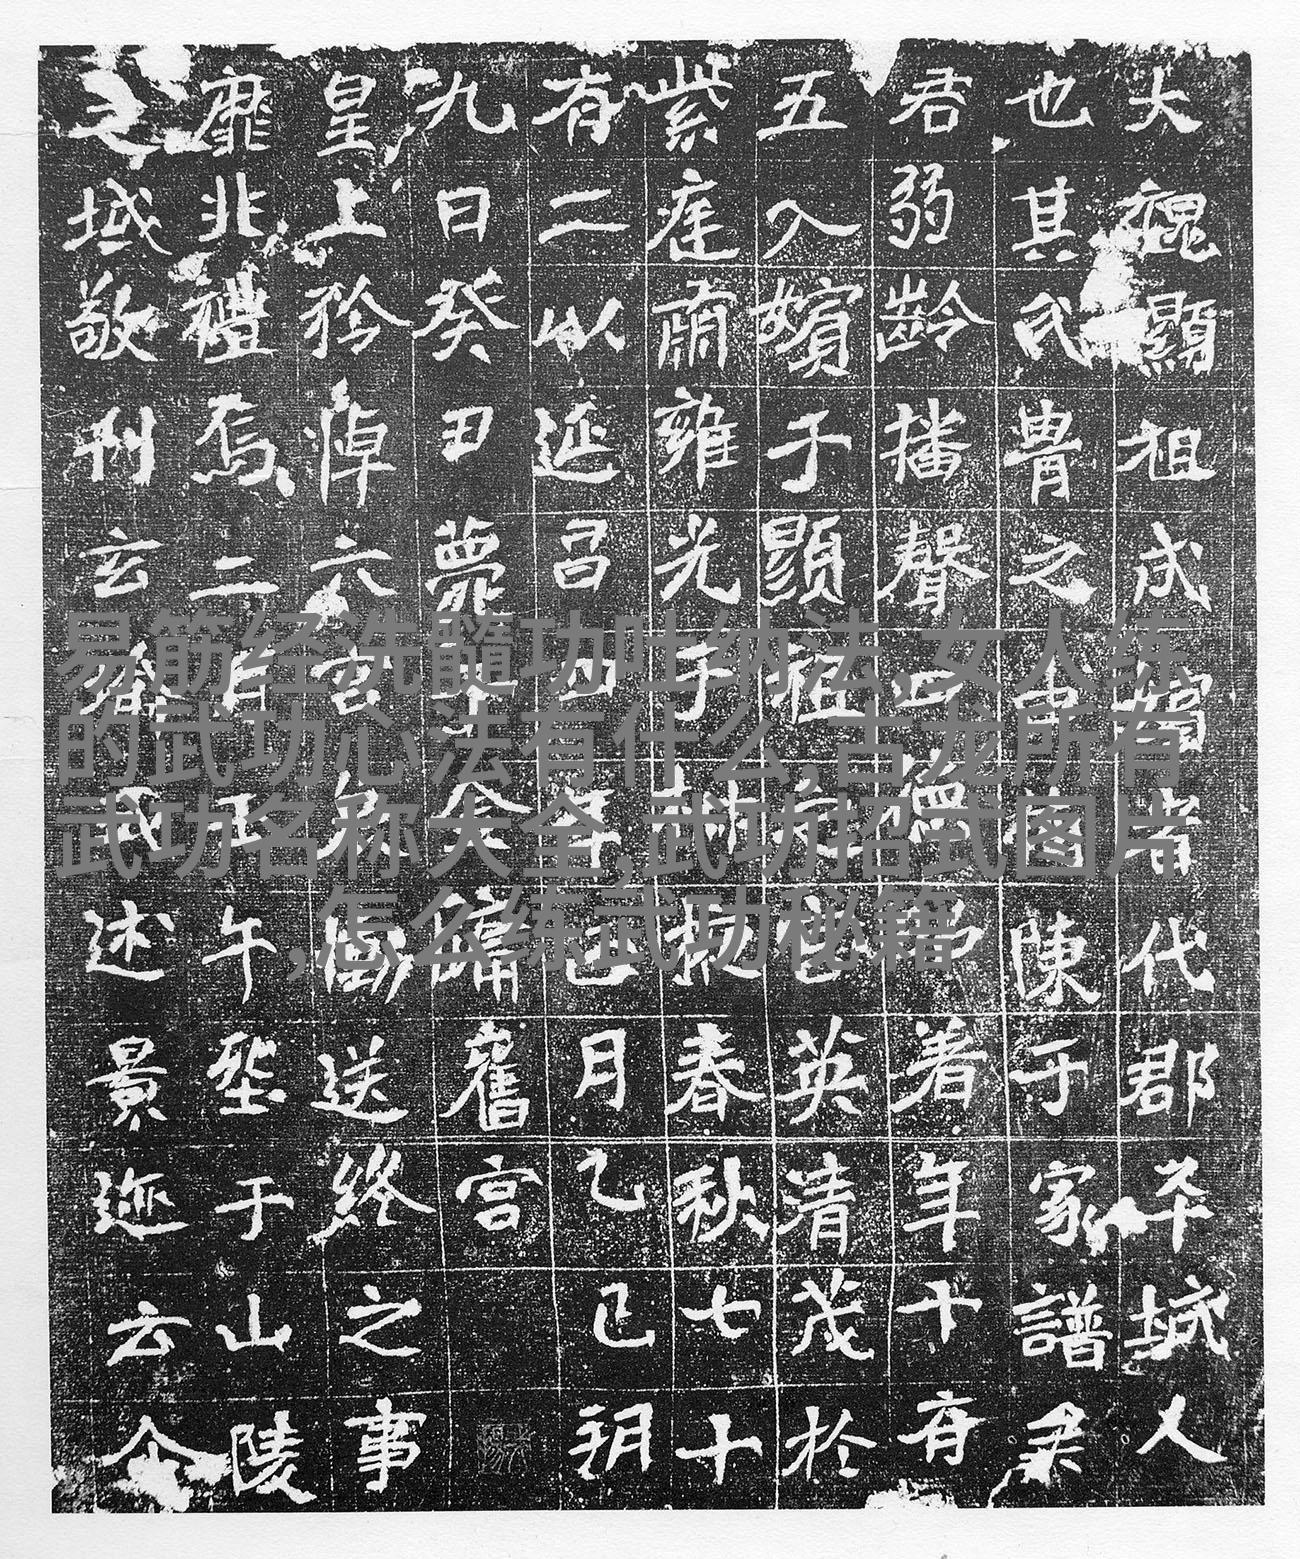 大魏顯祖成嬪者代郡平城人
也其氏胄之由陳于家譜
君弱齡播聲四德著年十有
五入嬪于顯祖英清茂於
紫庭肅雍光于掖春秋七十
有二以延昌四年正月乙巳朔
九日癸丑薨于金墉舊宮
皇上矜悼六宮哀慟送終之事
靡非禮焉二月午于山陵
之域敬刊玄式述景迹云尒
易筋经洗髓功吐纳法,女人练
的武功心法有什么,古龙所有
武功名称大全,武功招式图片
,怎么练武功秘籍